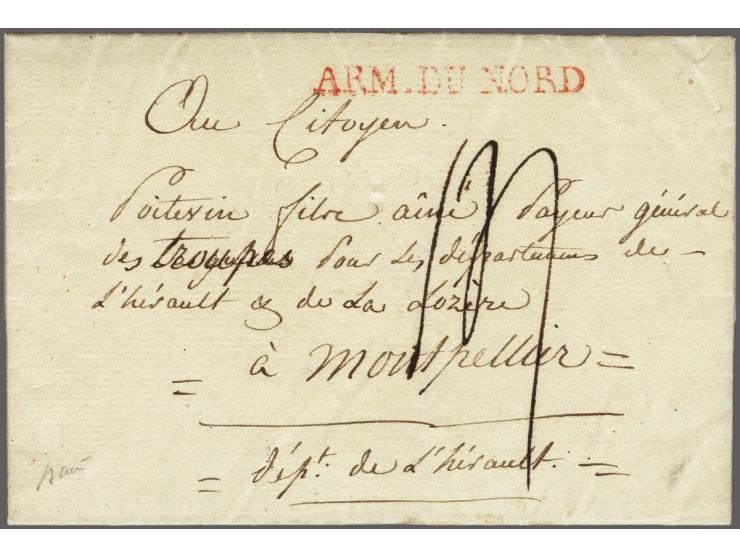 ARM. DU NORD
Au Citoyen.
Poitevin filse aîné Payeur général
des troupes pour Les départemens de
L'hérault & de La Lozère
à Montpellier =
=
= dép.t de L'hérault. =